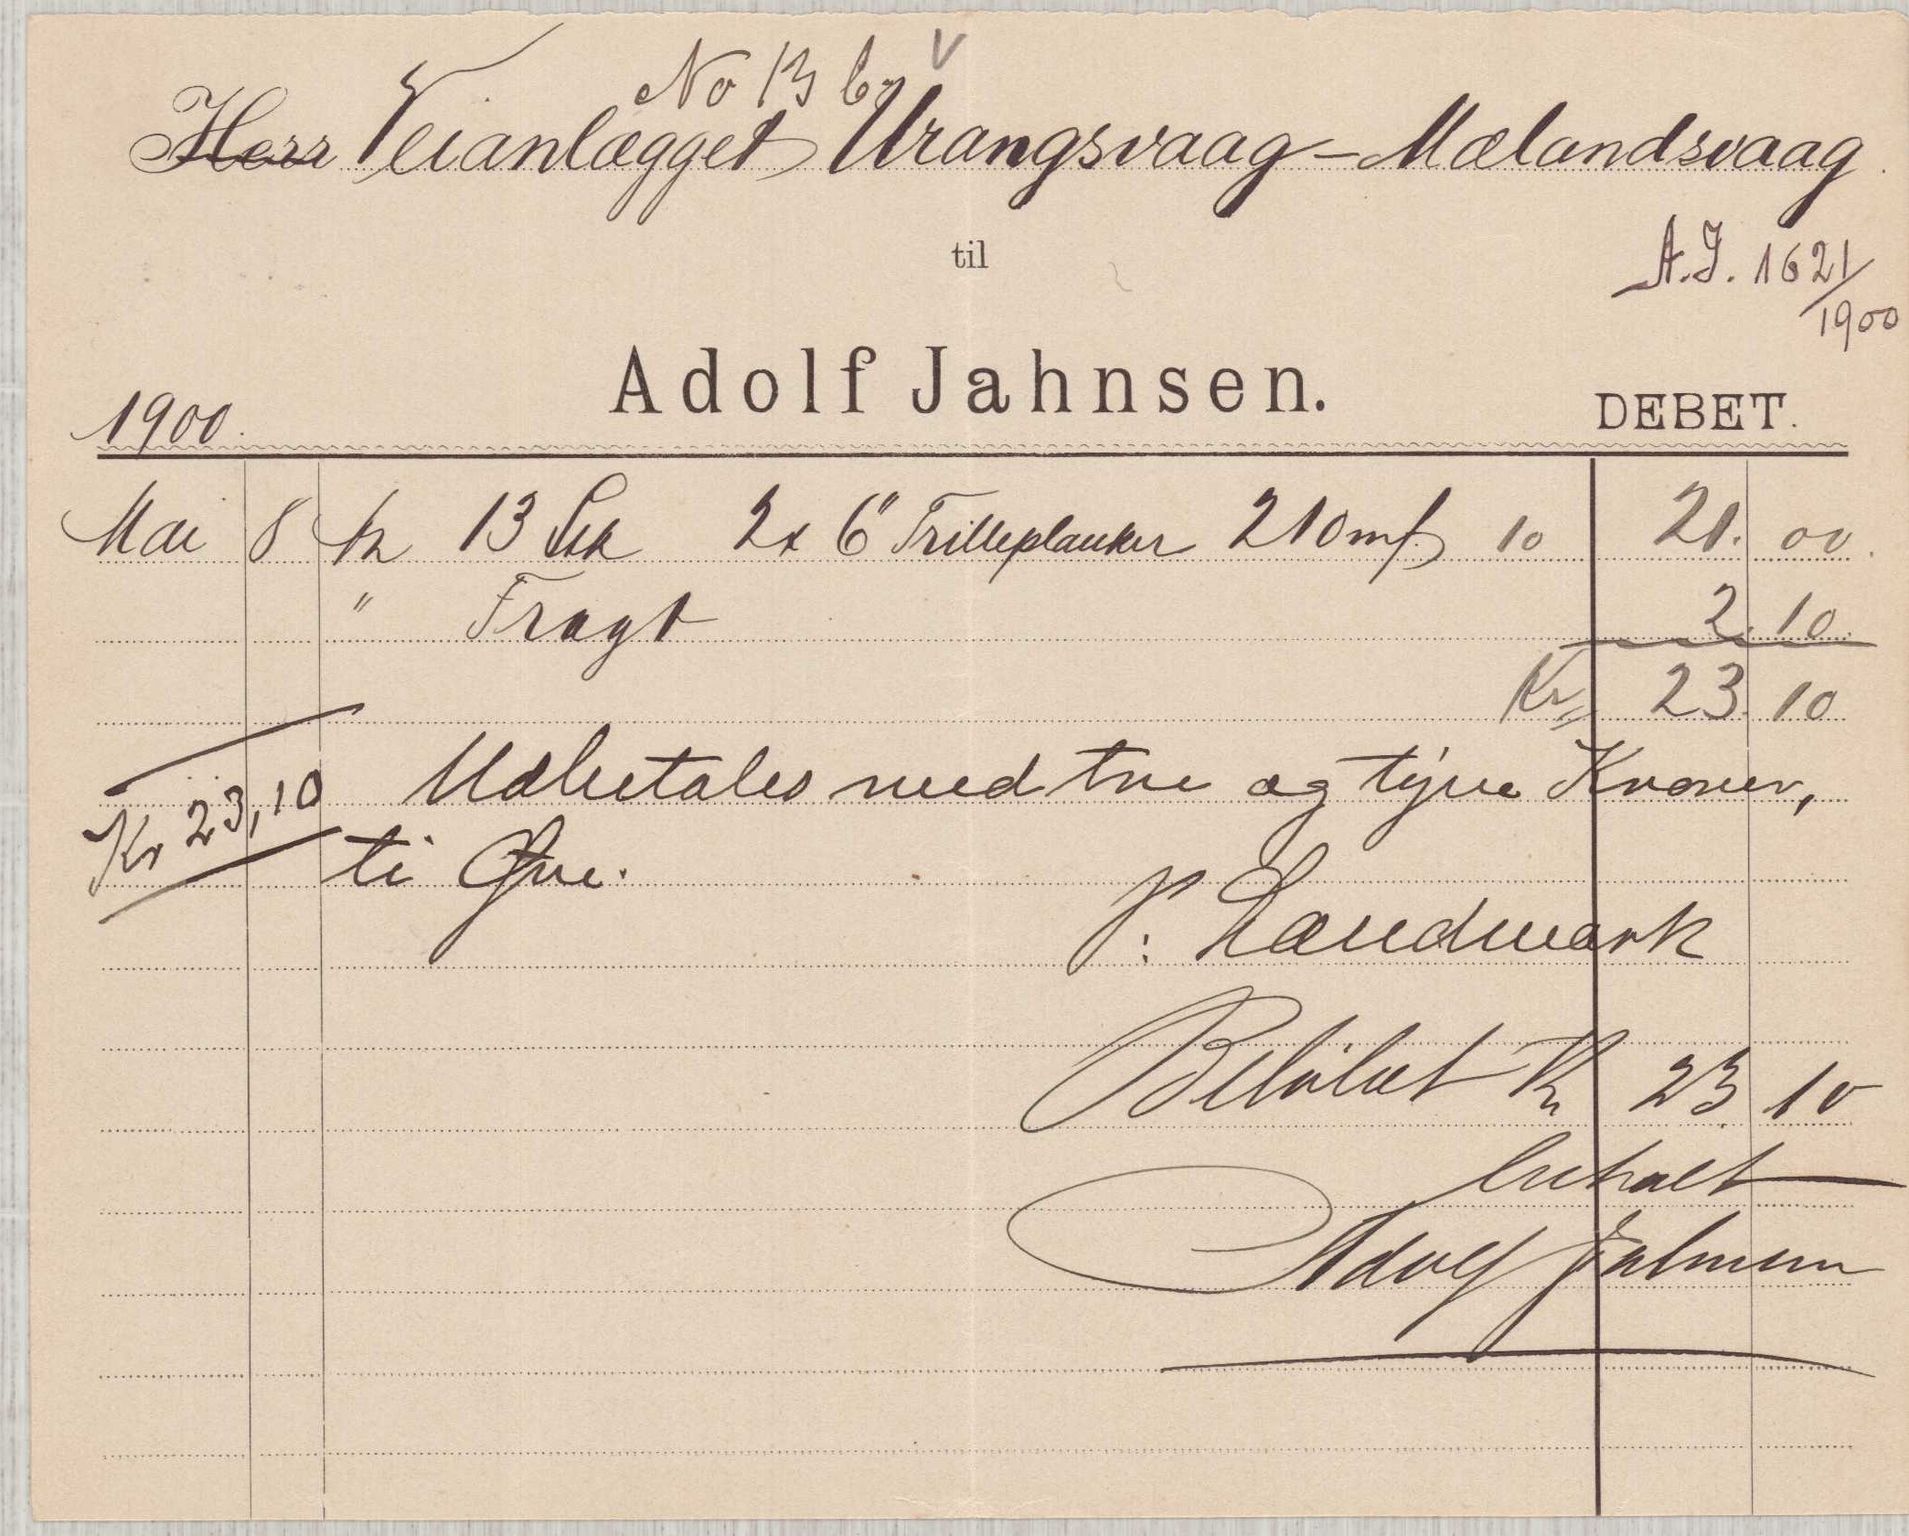 No 13 b. V
Herr Veianlægget Urangsvaag - Mælandsvaag
til
A.J. 1621/1900
Adolf Jahnsen.
1900. DEBET.
Mai 8 pr 13 Stk 2 x 6" Trilleplanker 210 mf 10 21. 00.
" Fragt 2. 10.
Kr 23. 10
Kr 23,10 Udbetales med tre og tyve Kroner,
ti Øre.
P. Landmark
Beløbet Kr 23 10
betalt
Adolf Jahnsen